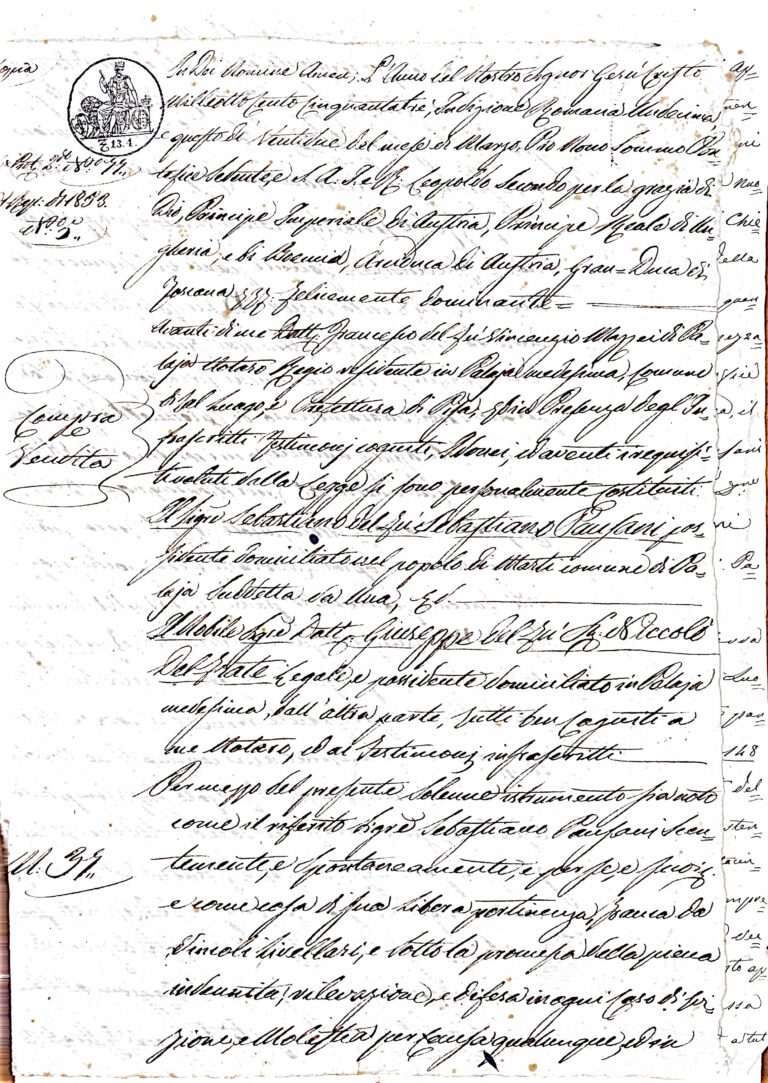 Copia
13.4.
In Dei Nomine Amen. L'Anno del Nostro Signor Gesù Cristo
Milleotto Cento Cinquantatre, Indizione Romana Undecima,
e questo dì Ventidue del mese di Marzo. Pio Nono Sommo Pon=
tefice Sedente, e S. A. I. e R. Leopoldo Secondo per la grazia di
Dio, Principe Imperiale di Austria, Principe Reale di Un=
gheria, e di Boemia, Arciduca di Austria, Gran=Duca di
Toscana felicemente dominante=
Avanti di me Dott. Francesco del fu Vincenzio Mazzei di Pa=
laja Notaro Regio residente in Palaja medesima, Comune
di tal Luogo, e Prefettura di Pisa, ed in Presenza degl'In=
frascritti Testimonj cogniti, Idonei, ed aventi i requisi=
ti voluti dalla Legge si sono personalmente costituiti
Il Sigre Sebastiano del fu Sebastiano Paufani pos=
sidente domiciliato nel popolo di Marti comune di Pa=
laja suddetta da una, Ed
Il Nobile Sigre Dott. Giuseppe del fu Niccolò
Del Frate Legale, e possidente domiciliato in Palaja
medesima, dall'altra parte, tutti ben cogniti a
me Notaro, ed ai Testimonj infrascritti
Per mezzo del presente Solenne istrumento sia noto
come il riferito Sigre Sebastiano Paufani Scien=
temente, e Spontaneamente, e per se, e suoi
e come cosa di sua libera pertinenza, franca da
Vincoli Livellari, e sotto la promessa della piena
indennità, rilevazione, e difesa in ogni Caso di Evi=
zione, e Molestia per causa qualunque, ed in
di 1853.
Compra
e
Vendita
N. 37,,